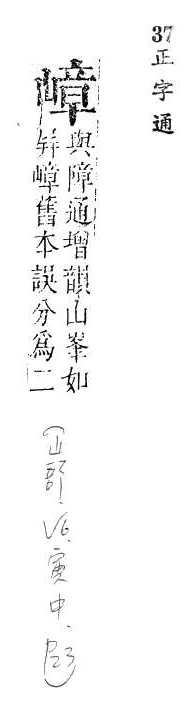 37 正字通
嶂
與障通增韻山峯如
屏嶂舊本誤分爲二
(山部.V6.寅中.P23)